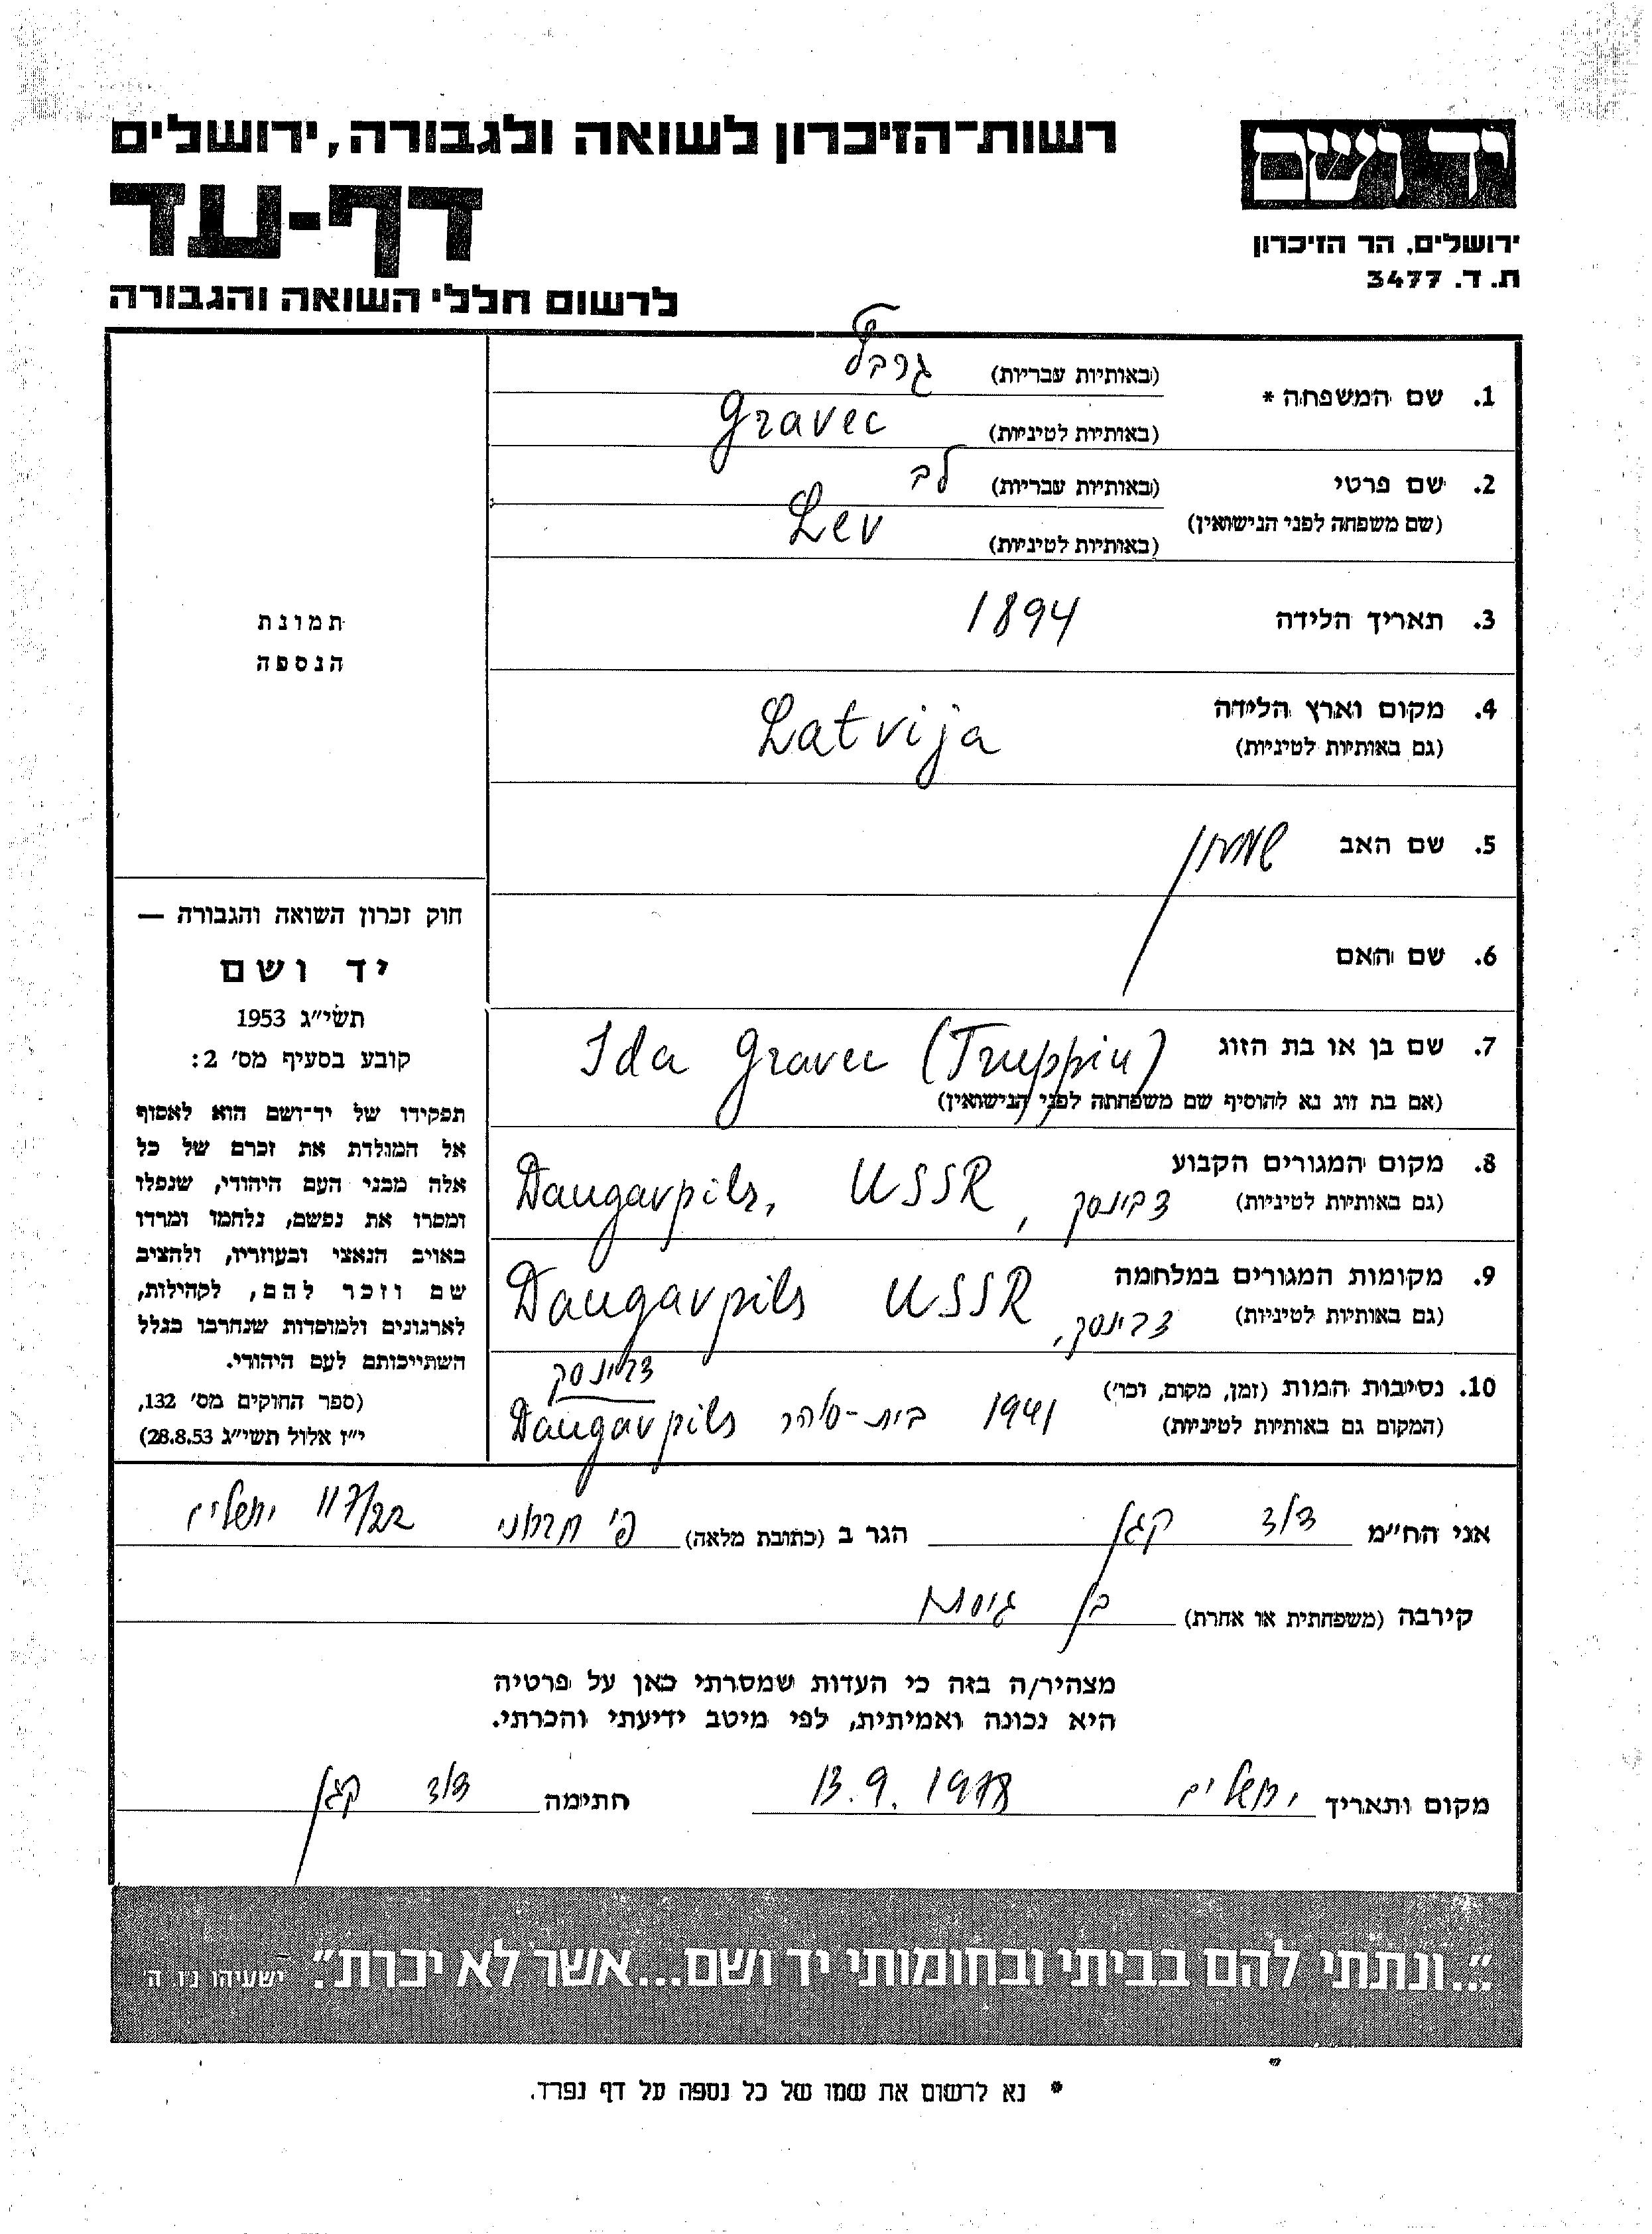 רשות־הזיכרון לשואה ולגבורה, ירושלים
דף-עד
לרשום חללי השואה והגבורה
יד ושם
ירושלים, הר הזיכרון
ת. ד. 3477
1. שם המשפחה *
(באותיות עבריות)
(באותיות לטיניות) Gravec
2. שם פרטי
(שם משפחה לפני הנישואין)
(באותיות עבריות) לב
(באותיות לטיניות) Lev
3. תאריך הלידה 1894
4. מקום וארץ הלידה Latvija
(גם באותיות לטיניות)
5. שם האב שמעון
6. שם האם
7. שם בן או בת הזוג Ida Gravec (Truppin)
(אם בת זוג נא להוסיף שם משפחתה לפני הנישואין)
8. מקום המגורים הקבוע דבינסק, Daugavpils, USSR
(גם באותיות לטיניות)
9. מקומות המגורים במלחמה דבינסק, Daugavpils USSR
(גם באותיות לטיניות)
10. נסיבות המות (זמן, מקום, וכו') דבינסק
(המקום גם באותיות לטיניות) 1941 בית-סוהר Daugavpils
תמונת
הנספה
חוק זכרון השואה והגבורה —
יד ושם
תשי"ג 1953
קובע בסעיף מס' 2:
תפקידו של יד־ושם הוא לאסוף
אל המולדת את זכרם של כל
אלה מבני העם היהודי, שנפלו
ומסרו את נפשם, נלחמו ומרדו
באויב הנאצי ובעוזריו, ולהציב
שם וזכר להם, לקהילות,
לארגונים ולמוסדות שנחרבו בגלל
השתייכותם לעם היהודי.
(ספר החוקים מס' 132,
י"ז אלול תשי"ג 28.8.53)
אני הח"מ דוד קגן הגר ב (כתובת מלאה) 117/22 ירושלים
קירבה (משפחתית או אחרת) בן גיסתו
מצהיר/ה בזה כי העדות שמסרתי כאן על פרטיה
היא נכונה ואמיתית, לפי מיטב ידיעתי והכרתי.
מקום ותאריך ירושלים 13.9.1978 חתימה דוד קגן
"...ונתתי להם בביתי ובחומותי יד ושם...אשר לא יכרת". ישעיהו נו, ה
* נא לרשום את שמו של כל נספה על דף נפרד.